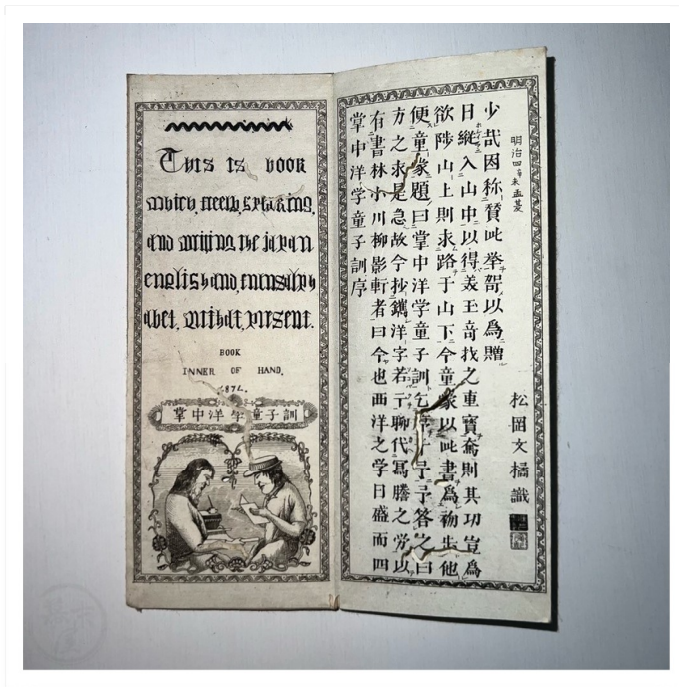 This is book
which, freely, speaking,
and writing the japan
english and,
abet. without, present.
BOOK
INNER OF HAND,
187
訓子童学洋中掌
掌中洋学童子訓序
有書林小川柳影軒者曰今也西洋之学日盛而四
方之求是急故今抄鐫洋字若干聊代冩謄之労以
便童蒙題曰掌中洋学童子訓乞序于予予答之曰
欲陟山上則求路于山下今童蒙以此書為初歩他
日縦入山中以得美玉奇 之重寶奪則其功豈為
少哉因称賛此挙 以為贈
明治四辛未孟夏
松岡文橘識